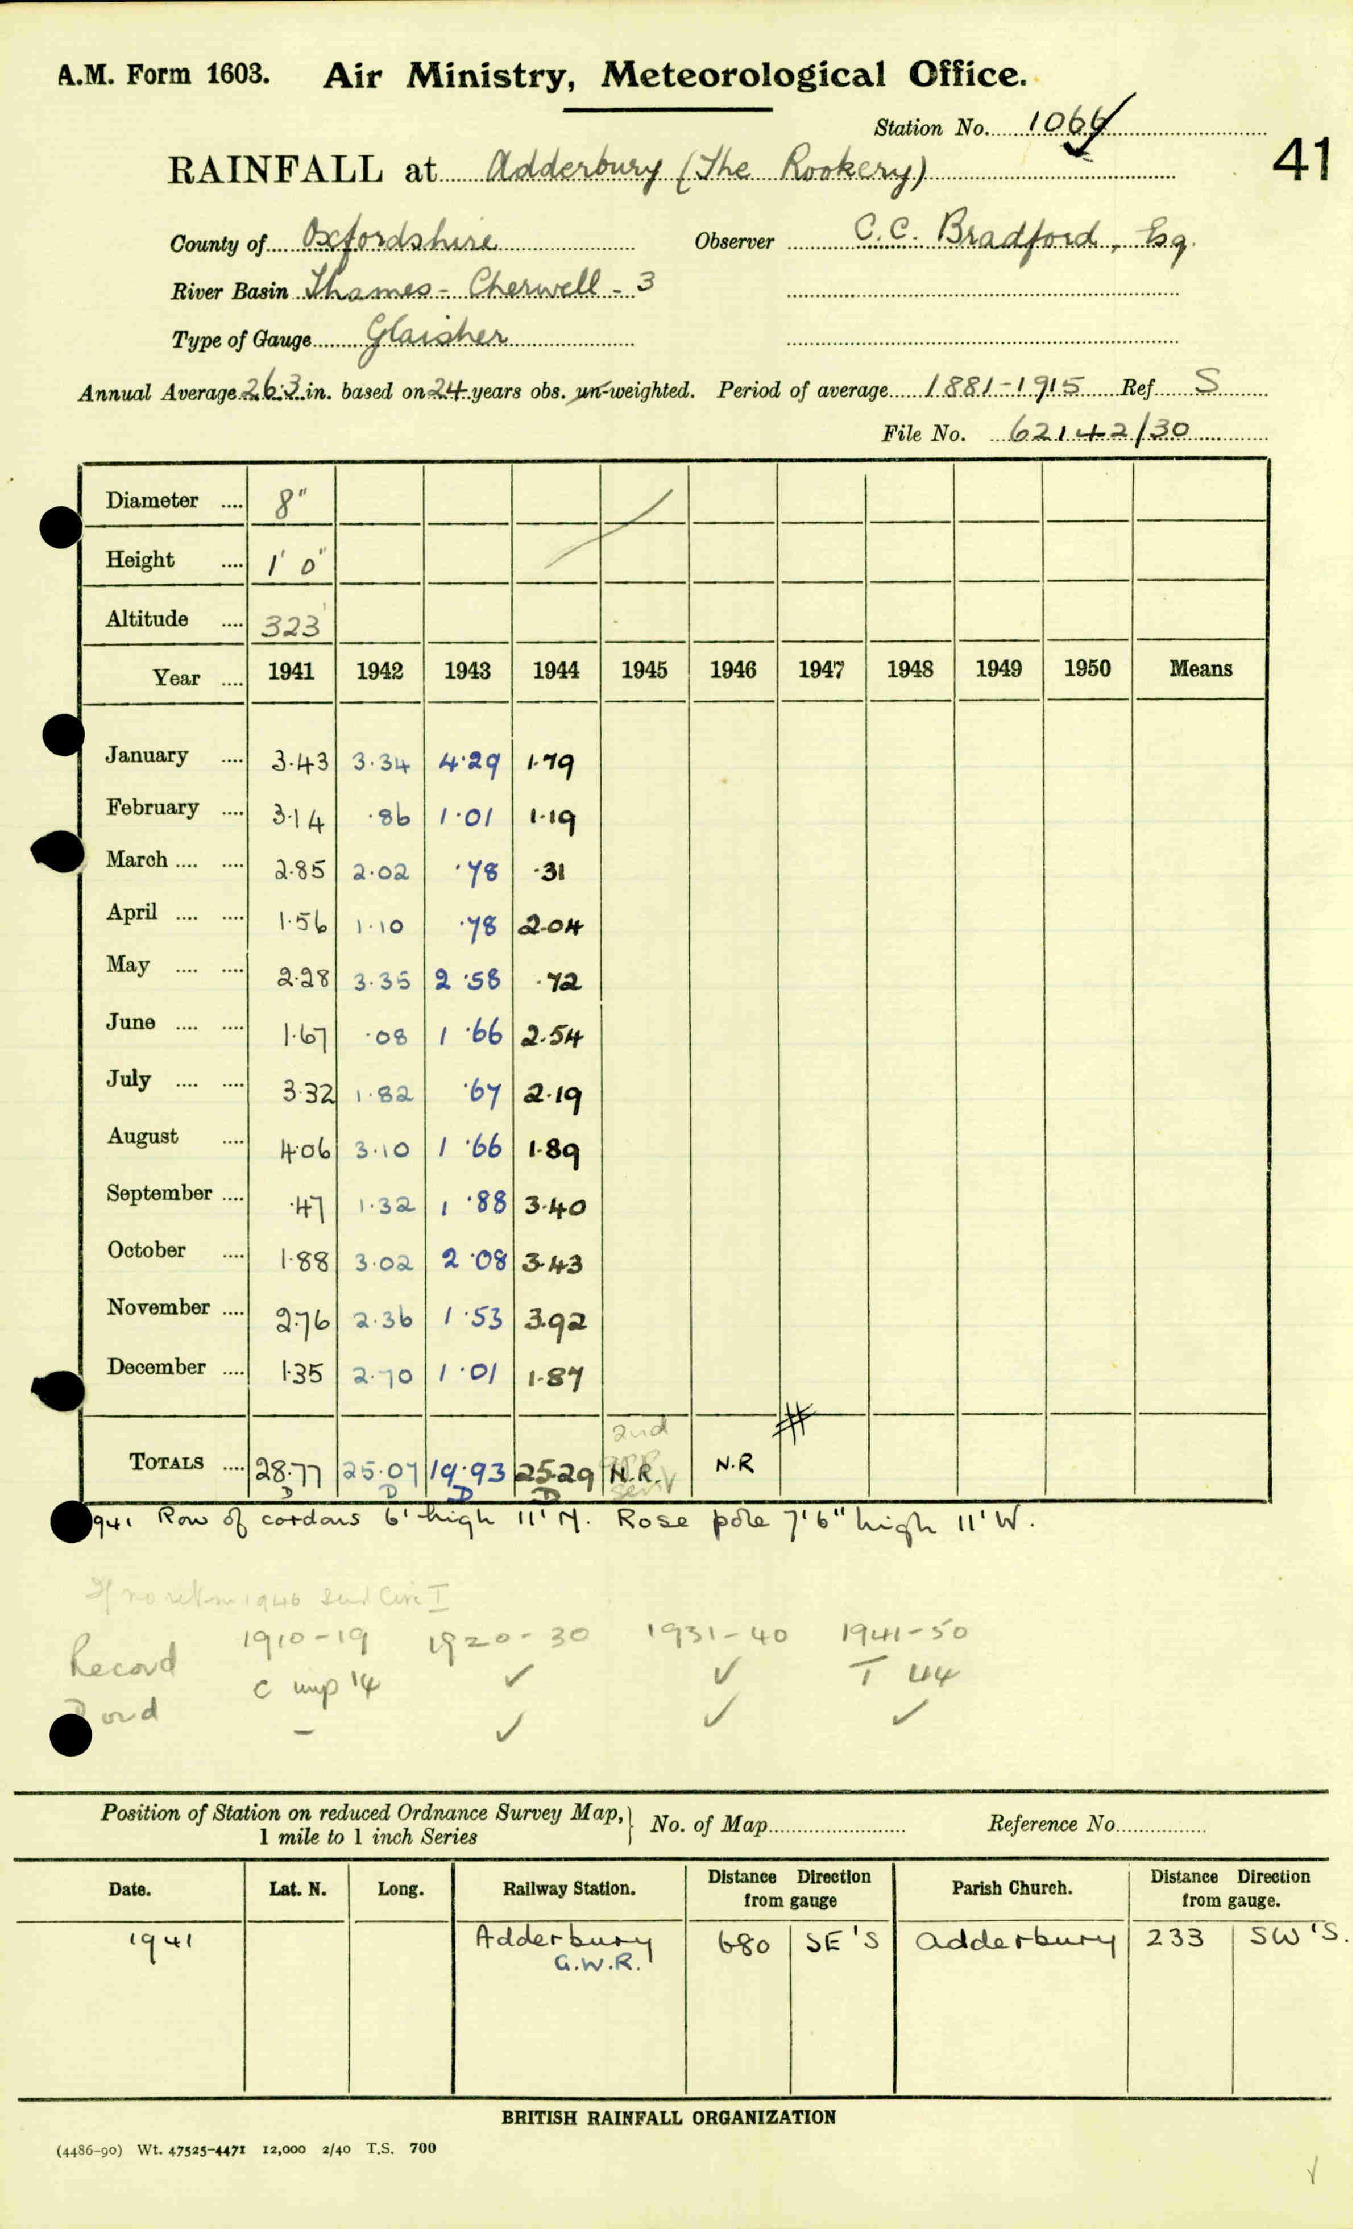 A.M. Form 1603. Air Ministry, Meteorological Office.
Station No. 1066
41
RAINFALL at Adderbury (The Rookery)
County of Oxfordshire Observer C.C. Bradford, Esq.
River Basin Thames - Cherwell - 3
Type of Gauge Glaisher
Annual Average 26.3 in. based on 24 years obs. un-weighted. Period of average 1881-1915 Ref S
File No. 62142/30
Diameter .... 8"
Height .... 1' 0"
Altitude .... 323'
Year .... 1941 1942 1943 1944 1945 1946 1947 1948 1949 1950 Means
January .... 3.43 3.34 4.29 1.79
February .... 3.14 .86 1.01 1.19
March .... .... 2.85 2.02 .78 .31
April .... .... 1.56 1.10 .78 2.04
May .... .... 2.28 3.35 2.58 .72
June .... .... 1.67 .08 1.66 2.54
July .... .... 3.32 1.82 .67 2.19
August .... 4.06 3.10 1.66 1.89
September .... .47 1.32 1.88 3.40
October .... 1.88 3.02 2.08 3.43
November .... 2.76 2.36 1.53 3.92
December .... 1.35 2.70 1.01 1.87
2nd
TOTALS .... 28.77 25.07 19.93 25.29 N.R. N.R
D D D D
1941 Row of cordons 6' high 11' N. Rose pole 7'6" high 11' W.
If no return 1946 send Circ I
1910-19 1920-30 1931-40 1941-50
Record C 14 ✓ ✓ T 44
– ✓ ✓ ✓
Position of Station on reduced Ordnance Survey Map, } No. of Map Reference No.
1 mile to 1 inch Series
Date. Lat. N. Long. Railway Station. Distance Direction from gauge Parish Church. Distance Direction from gauge.
1941 Adderbury 680 SE'S Adderbury 233 SW'S.
G.W.R.
BRITISH RAINFALL ORGANIZATION
(4486-90) Wt. 47525-4471 12,000 2/40 T.S. 700